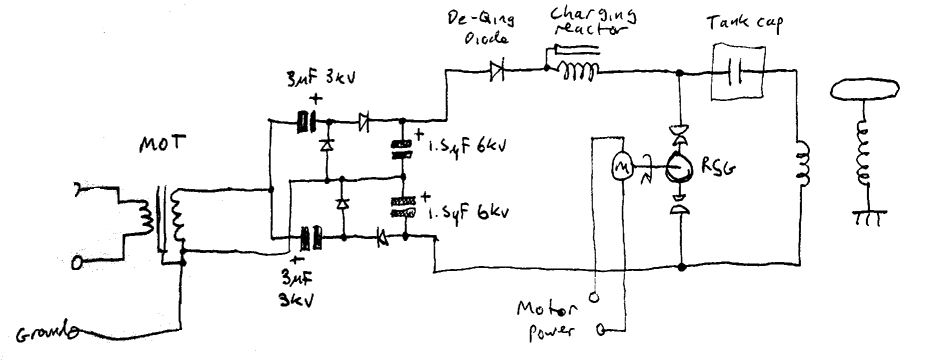 De-Qing
Diode
Charging
reactor
Tank cap
3µF 3kV
+
MOT
+
1.5µF 6kV
M
RSG
+
1.5µF 6kV
+
3µF
3kV
Motor
power
Ground